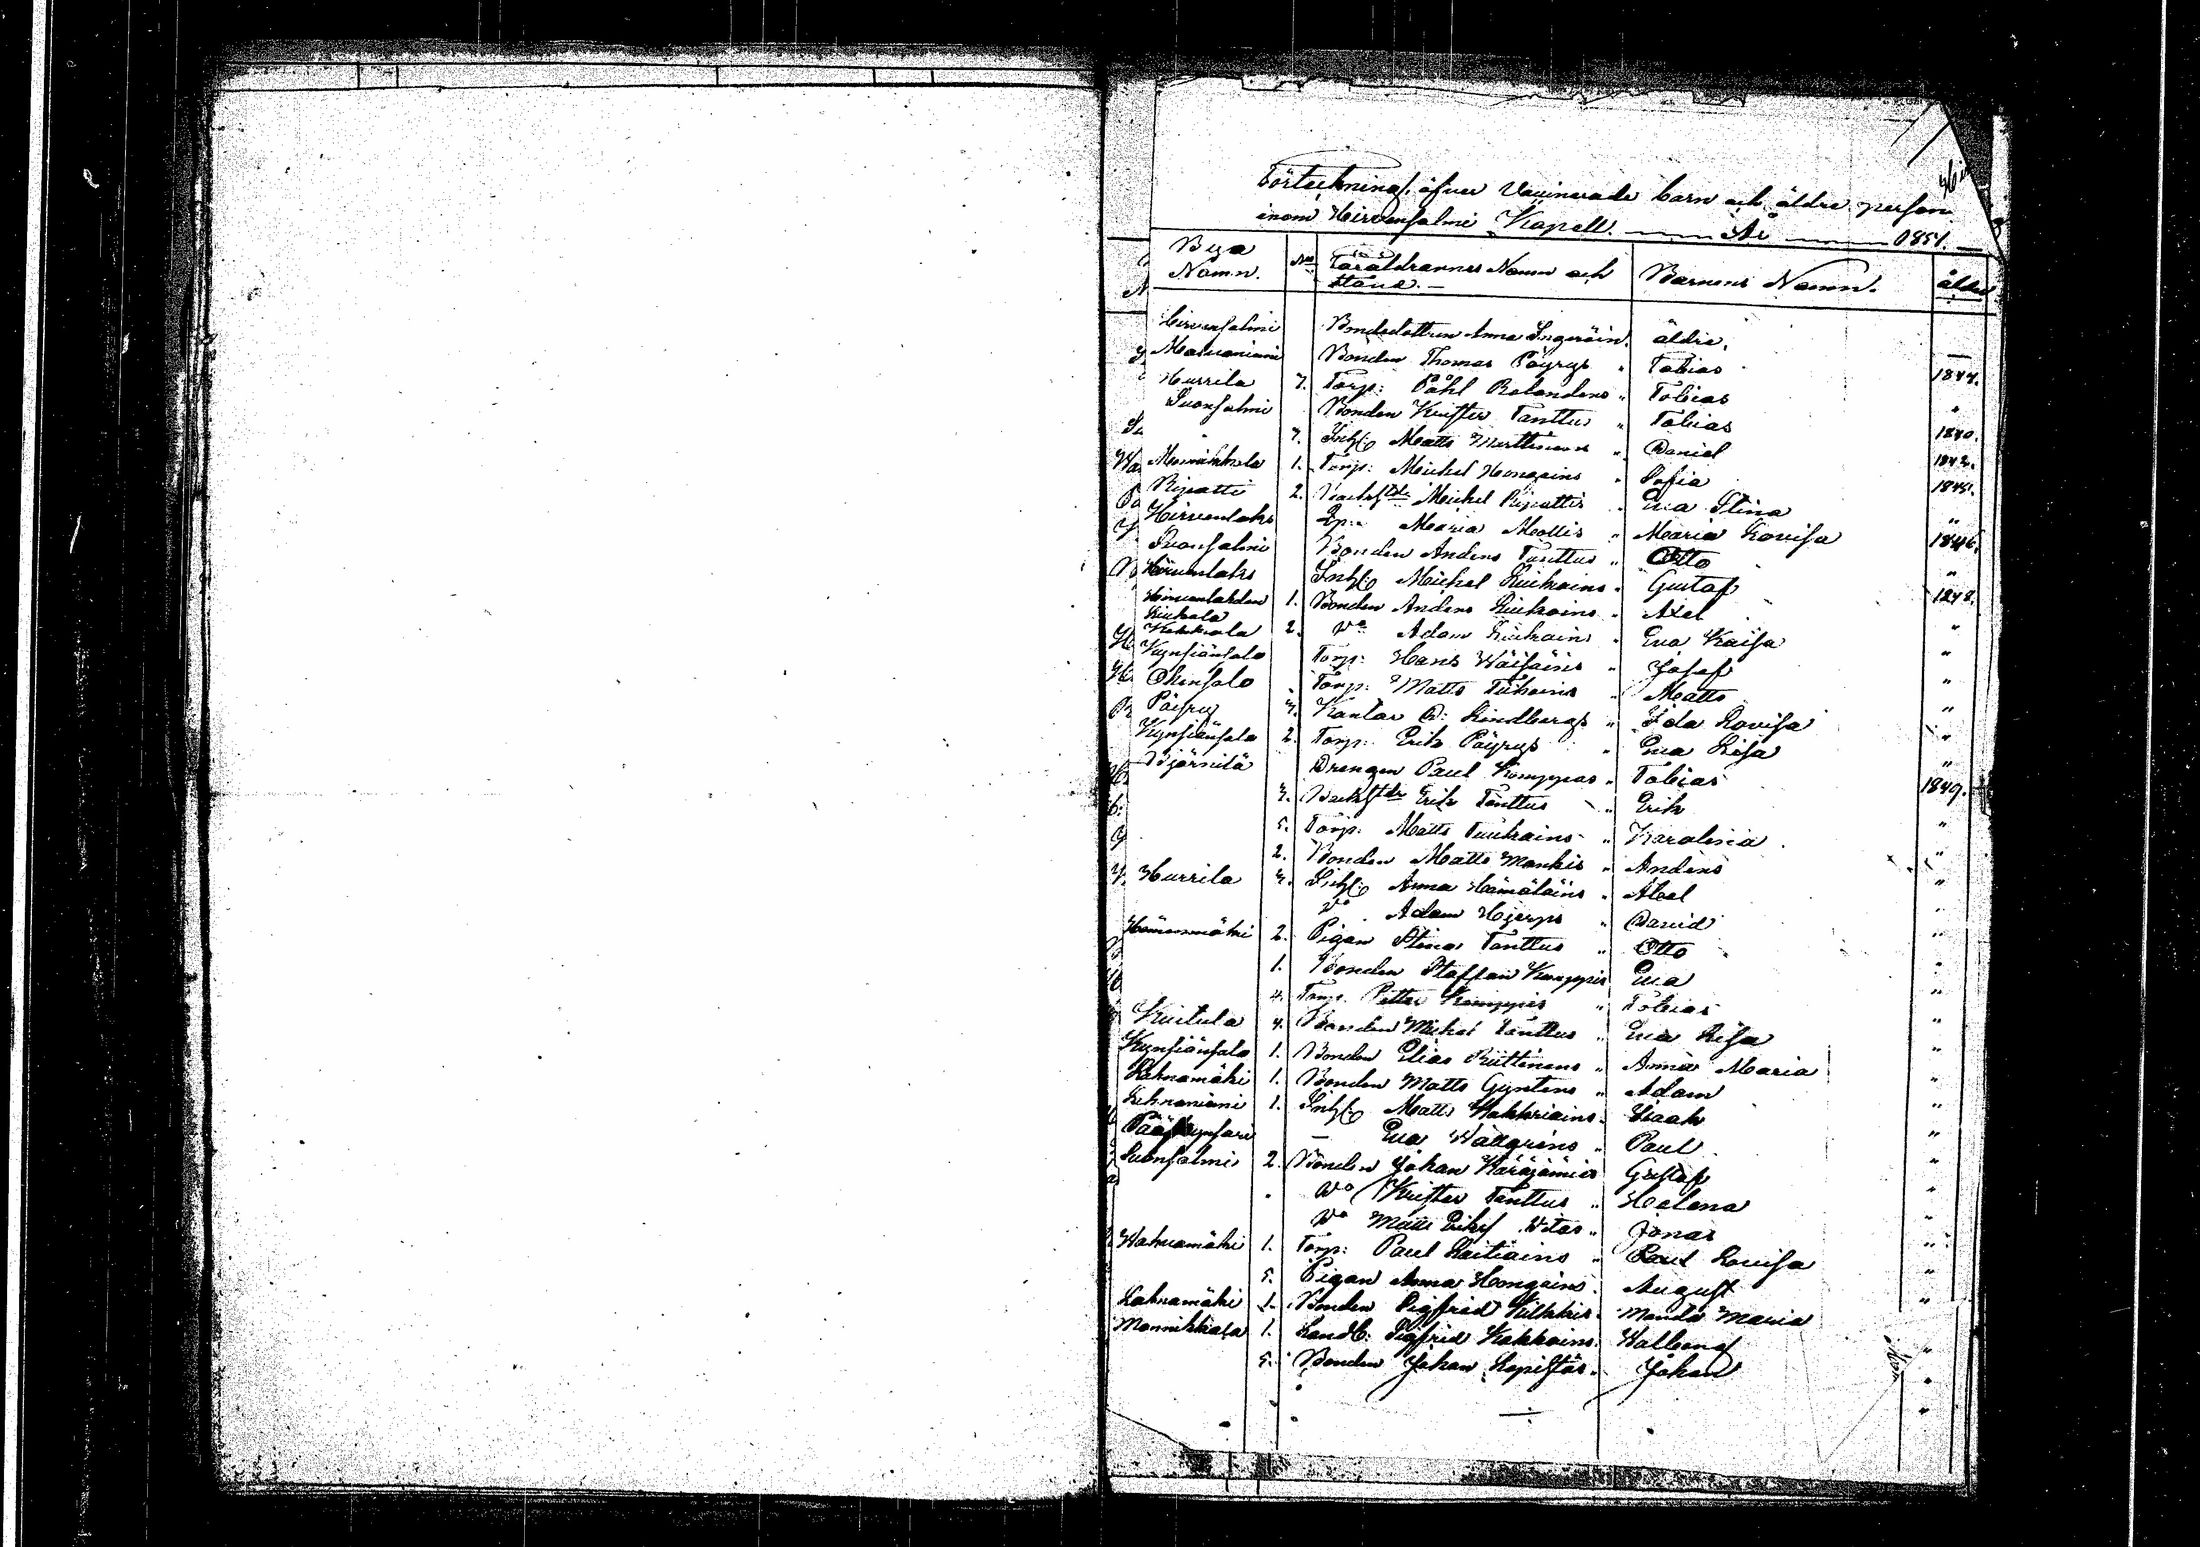 Förteckning öfver Vaccinerade barn och äldre person.
inom Hirvensalmi Kapell. År 1851.
Bya Namn. No Föräldrarnes Namn och Stånd. Barnens Namn. ålder
Hirvensalmi Bondedottren Anna Ingeröin. äldre. —
Bonden Thomas Pöyrys " Tobias 1844.
Hurrila 7. Torp: Påhl Rolanders " Tobias "
Suonsalmi Bonden Krister Tanttus " Tobias 1840.
" 7. Inh: Matts Marttinens " Daniel 1842.
Mannikkala 1. Torp: Michel Hongains " Sofia 1845.
Ripatti 2. Backstr Michel Ripattis " Eva Stina "
Hirvenlaks Maria Mollis " Maria Lovisa 1846.
Suonsalmi Bonden Anders Tanttus " Otto "
Hirvenlaks Inh: Michel Liukoins " Gustaf 1848.
Hirvenlahden Liukala 1. Bonden Anders Liukoins " Axel "
Kekkola 2. Do Adam Liukoins " Eva Kaisa "
Kynsiänsalo Torp: Hans Wäisäins " Josef "
Okensalo Torp: Matts Tiihoins " Matts "
Pöyry 3. Kantor D: Lindbergs " Ida Lovisa "
Kynsiänsalo 2. Torp: Erik Pöyrys " Eva Lisa "
Björnilä Drengen Paul Komppas " Tobias 1849.
3. Backstr Erik Tanttus " Erik "
5. Torp: Matts Tuukains " Karolina "
2. Bonden Matts Mankis " Anders "
Hurrila 3. Inh: Anna Hämäläins " Abel "
Do Adam Hjerps " David "
Hämeenmäki 2. Pigan Stina Tanttus " Otto "
1. Bonden Staffan Kamppis Eva "
4. Torp. Petter Kamppis " Tobias "
Kuitula 4. Bonden Michel Tanttus " Eva Lisa "
Kynsiänsalo 1. Bonden Elias Ruttinens " Anna Maria "
Lahnamäki 1. Bonden Matts Gynters " Adam "
Lehnaniemi 1. Inh: Matts Hakkriains " Isaak "
— Eva Wallgrens " Paul "
Suonsalmi 2. Bonden Johan Käräjämies Gustaf "
" Do Krister Tanttus " Helena "
Do Matts Witas " Jonas "
Wahvamäki 1. Torp: Paul Laitiains " Lovisa "
5. Pigan Anna Hongains August "
Lahnamäki 1. Bonden Sigfrid Kilkkis. Manda Maria "
Mannikkala 1. Landb: Sigfrid Kakkoins. Walborg "
5. Bonden Johan Lapistös. Johan "